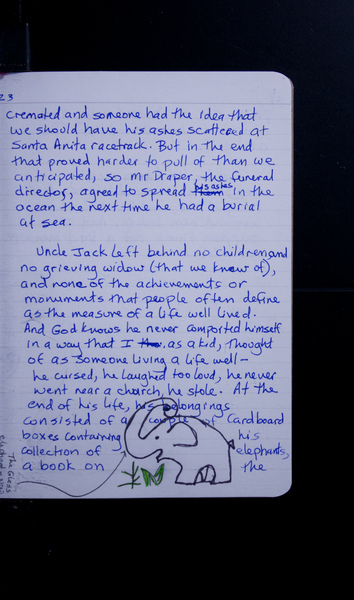 23
cremated and someone had the idea that
we should have his ashes scattered at
Santa Anita racetrack. But in the end
that proved harder to pull of than we
anticipated, so Mr Draper, the funeral
director, agreed to spread his ashes in the
ocean the next time he had a burial
at sea.
Uncle Jack Left behind no children and
no grieving widow (that we knew of),
and none of the achievements or
monuments that people often define
as the measure of a life well lived.
And God knows he never comported himself
in a way that I as a kid, thought
of as someone living a life well—
he cursed, he laughed too loud, he never
went near a church, he stole. At the
end of his life, his belongings
consisted of a couple of Cardboard
boxes containing his
collection of elephants,
a book on the
The Glass